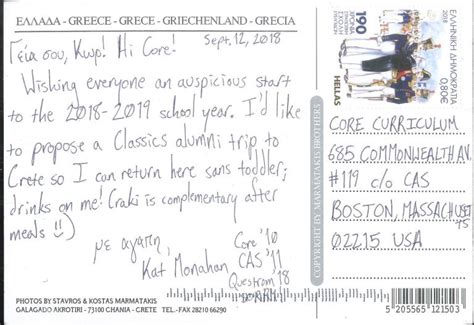 ΕΛΛΑΔΑ - GREECE - GRECE - GRIECHENLAND - GRECIA
Γεία σου, Κωρ! Hi Core!
Sept. 12, 2018
Wishing everyone an auspicious start
to the 2018-2019 school year. I'd like
to propose a Classics alumni trip to
Crete so I can return here sans toddler;
drinks on me! Craki is complementary after
meals :)
με αγαπη,
Kat Monahan
Core '10
CAS '11
Questrom '18
PHOTOS BY STAVROS & KOSTAS MARMATAKIS
GALAGADO AKROTIRI - 73100 CHANIA - CRETE TEL-FAX 28210 66290
COPYRIGHT BY MARMATAKIS BROTHERS
190
ΕΛΛΗΝΙΚΗ ΔΗΜΟΚΡΑΤΙΑ
2018
0,80€
HELLAS
CORE CURRICULUM
685 COMMONWEALTH AV.
#119 c/o CAS
BOSTON, MASSACHUSETTS
02215 USA
5 205565 121503